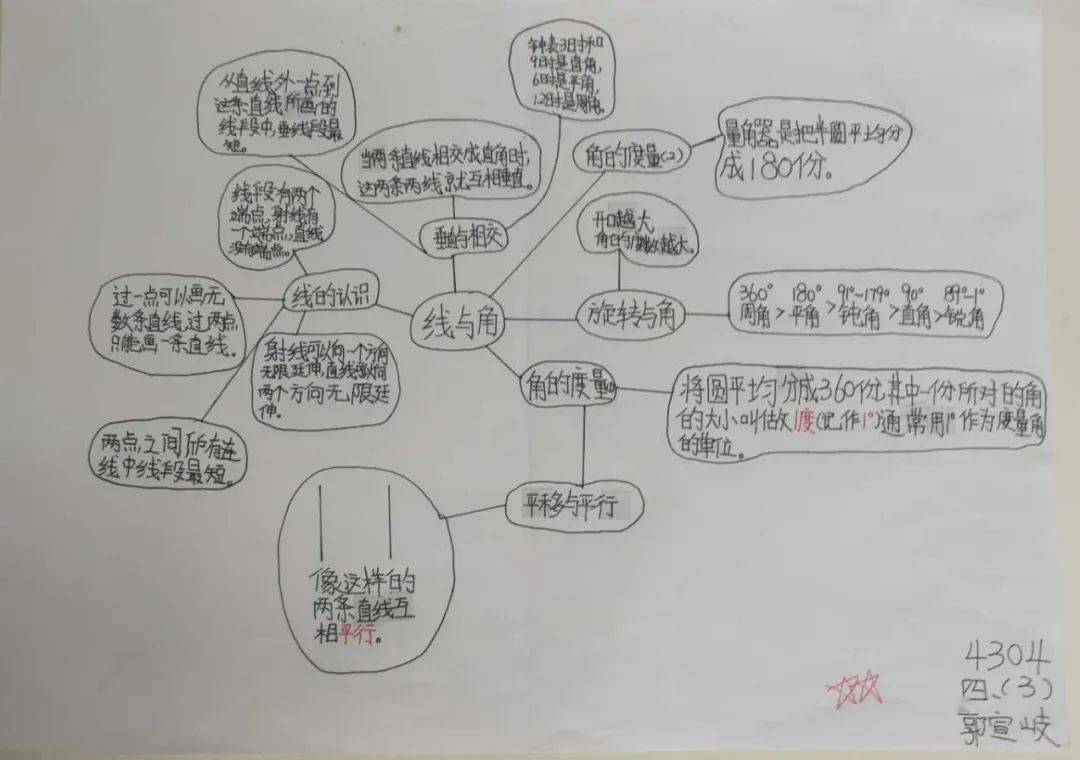 钟表3时和
9时是直角,
6时是平角,
12时是周角。
从直线外一点到
这条直线所画的
线段中,垂线段最
短。
当两条直线相交成直角时,
这两条两线就互相垂直。
角的度量(2)
量角器是把半圆平均分
成180份。
线段有两个
端点,射线有
一个端点,直线
没有端点。
垂直与相交
开口越大,
角的度数越大。
过一点可以画无
数条直线,过两点,
只能画一条直线。
线的认识
线与角
旋转与角
360° 180° 91°~179° 90° 89°~1°
周角>平角>钝角>直角>锐角
射线可以向一个方向
无限延伸,直线可以向
两个方向无限延
伸。
角的度量(1)
将圆平均分成360份,其中一份所对的角
的大小叫做1度(记作1°)通常用1°作为度量角
的单位。
两点之间所有连
线中线段最短。
平移与平行
像这样的
两条直线互
相平行。
4304
四、(3)
郭宣岐